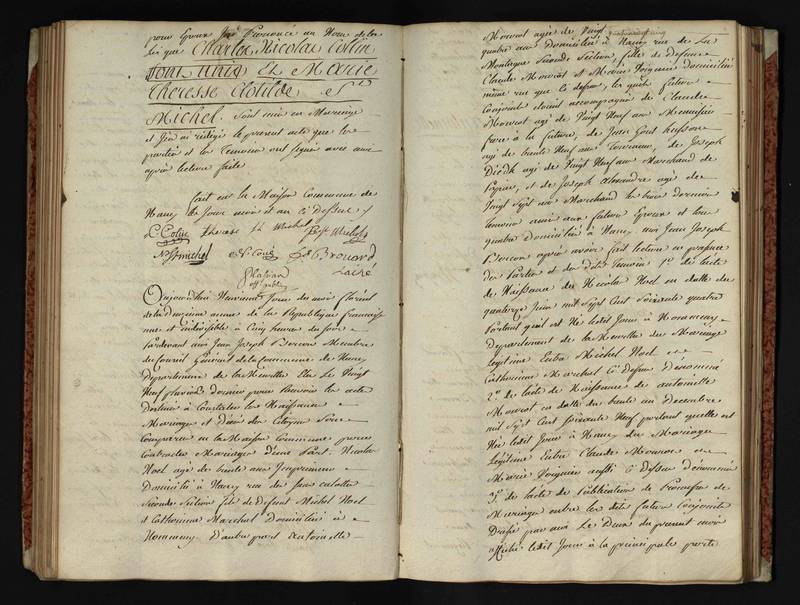 pour Epoux J'ai Prononcé au Nom de la
loi que Charles Nicolas Colin
sont unis Et Marie
Theresse Clotilde St
Michel. Sont unis en Mariage
et J'en ai rédigé le present acte que les
parties et les Temoins ont signé avec moi
après lecture faite
fait en la Maison Commune de
Nancy les Jour mois et an Ci Dessus
C. Colin Therese St Michel
St michel N. Colin Brouard
Lacre
off. public
Aujourdhui Neuvieme Jour du mois floreal
de la Deuzieme année de la Republique française
une et indivisible à Cinq heures du soir
Pardevant moi Jean Joseph Borcon Membre
du Conseil Général de la Commune de Nancy
Departement de la Meurthe Elu Le Vingt
Neuf pluviôse Dernier pour Recevoir les acte
Destinés à Constater les Naissances
Mariages et Décès des Citoyens Sont
Comparu en la Maison Commune pour
Contracter Mariage D'une Part. Nicolas
Noel agé de trente ans Imprimeur
Domicilié à Nancy rue des sans culottes
Seconde Section fils de Defunt Michel Noel
et Catherine Marchal Domicilié à
Nommeny D'autre part antoinette
Mourot agée de Vingt
quatre ans Domiciliée à Nancy rue de La
Montagne Seconde Section, fille de Defunt
Claude Mourot et Marie Poignée domiciliée
même rue que le defunt, les quels futurs
Conjoints étoient accompagné de Claude
Mourot agé de Vingt Neuf ans Menuisier
frere à la future, de Jean Louis husson
agé de trente Neuf ans Tourneur, de Joseph
Diedk agé de Vingt Neuf ans Marchand de
Papier, et de Joseph alexandre agé de
Vingt Sept ans Marchand les trois derniers
Temoins amis aux futurs Epoux et tous
quatre Domiciliés à Nancy moi Jean Joseph
Borcon après avoir fait lecture en presence
des Parties et des dits Temoins 1º de l'acte
de Naissance de Nicolas Noel en datte du
quatorze Juin mil Sept Cent Soixante quatre
Portant qu'il est Né ledit Jour à Nommeny
Departement de la Meurthe du Mariage
Légitime Entre Michel Noel et
Catherinne Marchal Ci Dessus Dénommé
2º de l'acte de Naissance de antoinette
Mourot en datte du trente un Decembre
mil Sept Cent Soixante Neuf portant quelle est
Née ledit Jour à Nancy du Mariage
Légitime Entre Claude Mourot et
Marie Poignée aussi Ci Dessus dénommé
3º de l'acte de Publication de Promesses de
Mariage entre les dits futurs Conjoints
Dressé par moi Le Deux du present mois
affiché ledit Jour à la principale porte